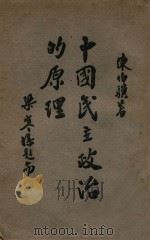 陳伯驥著
中國民主政治
的原理
梁寒操題耑